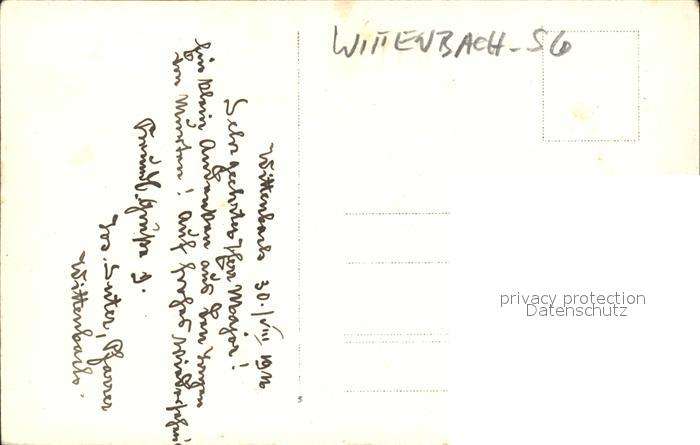 WITTENBACH-SG
Wittenbach 30./VII 1916
Sehr geehrter Herr Major!
Ein klein Andenken aus den Tagen
von Mürten! Auf frohes Wiedersehen
Freundl. Grüße
Jos. Suter, Pfarrer
Wittenbach.
privacy protection
Datenschutz